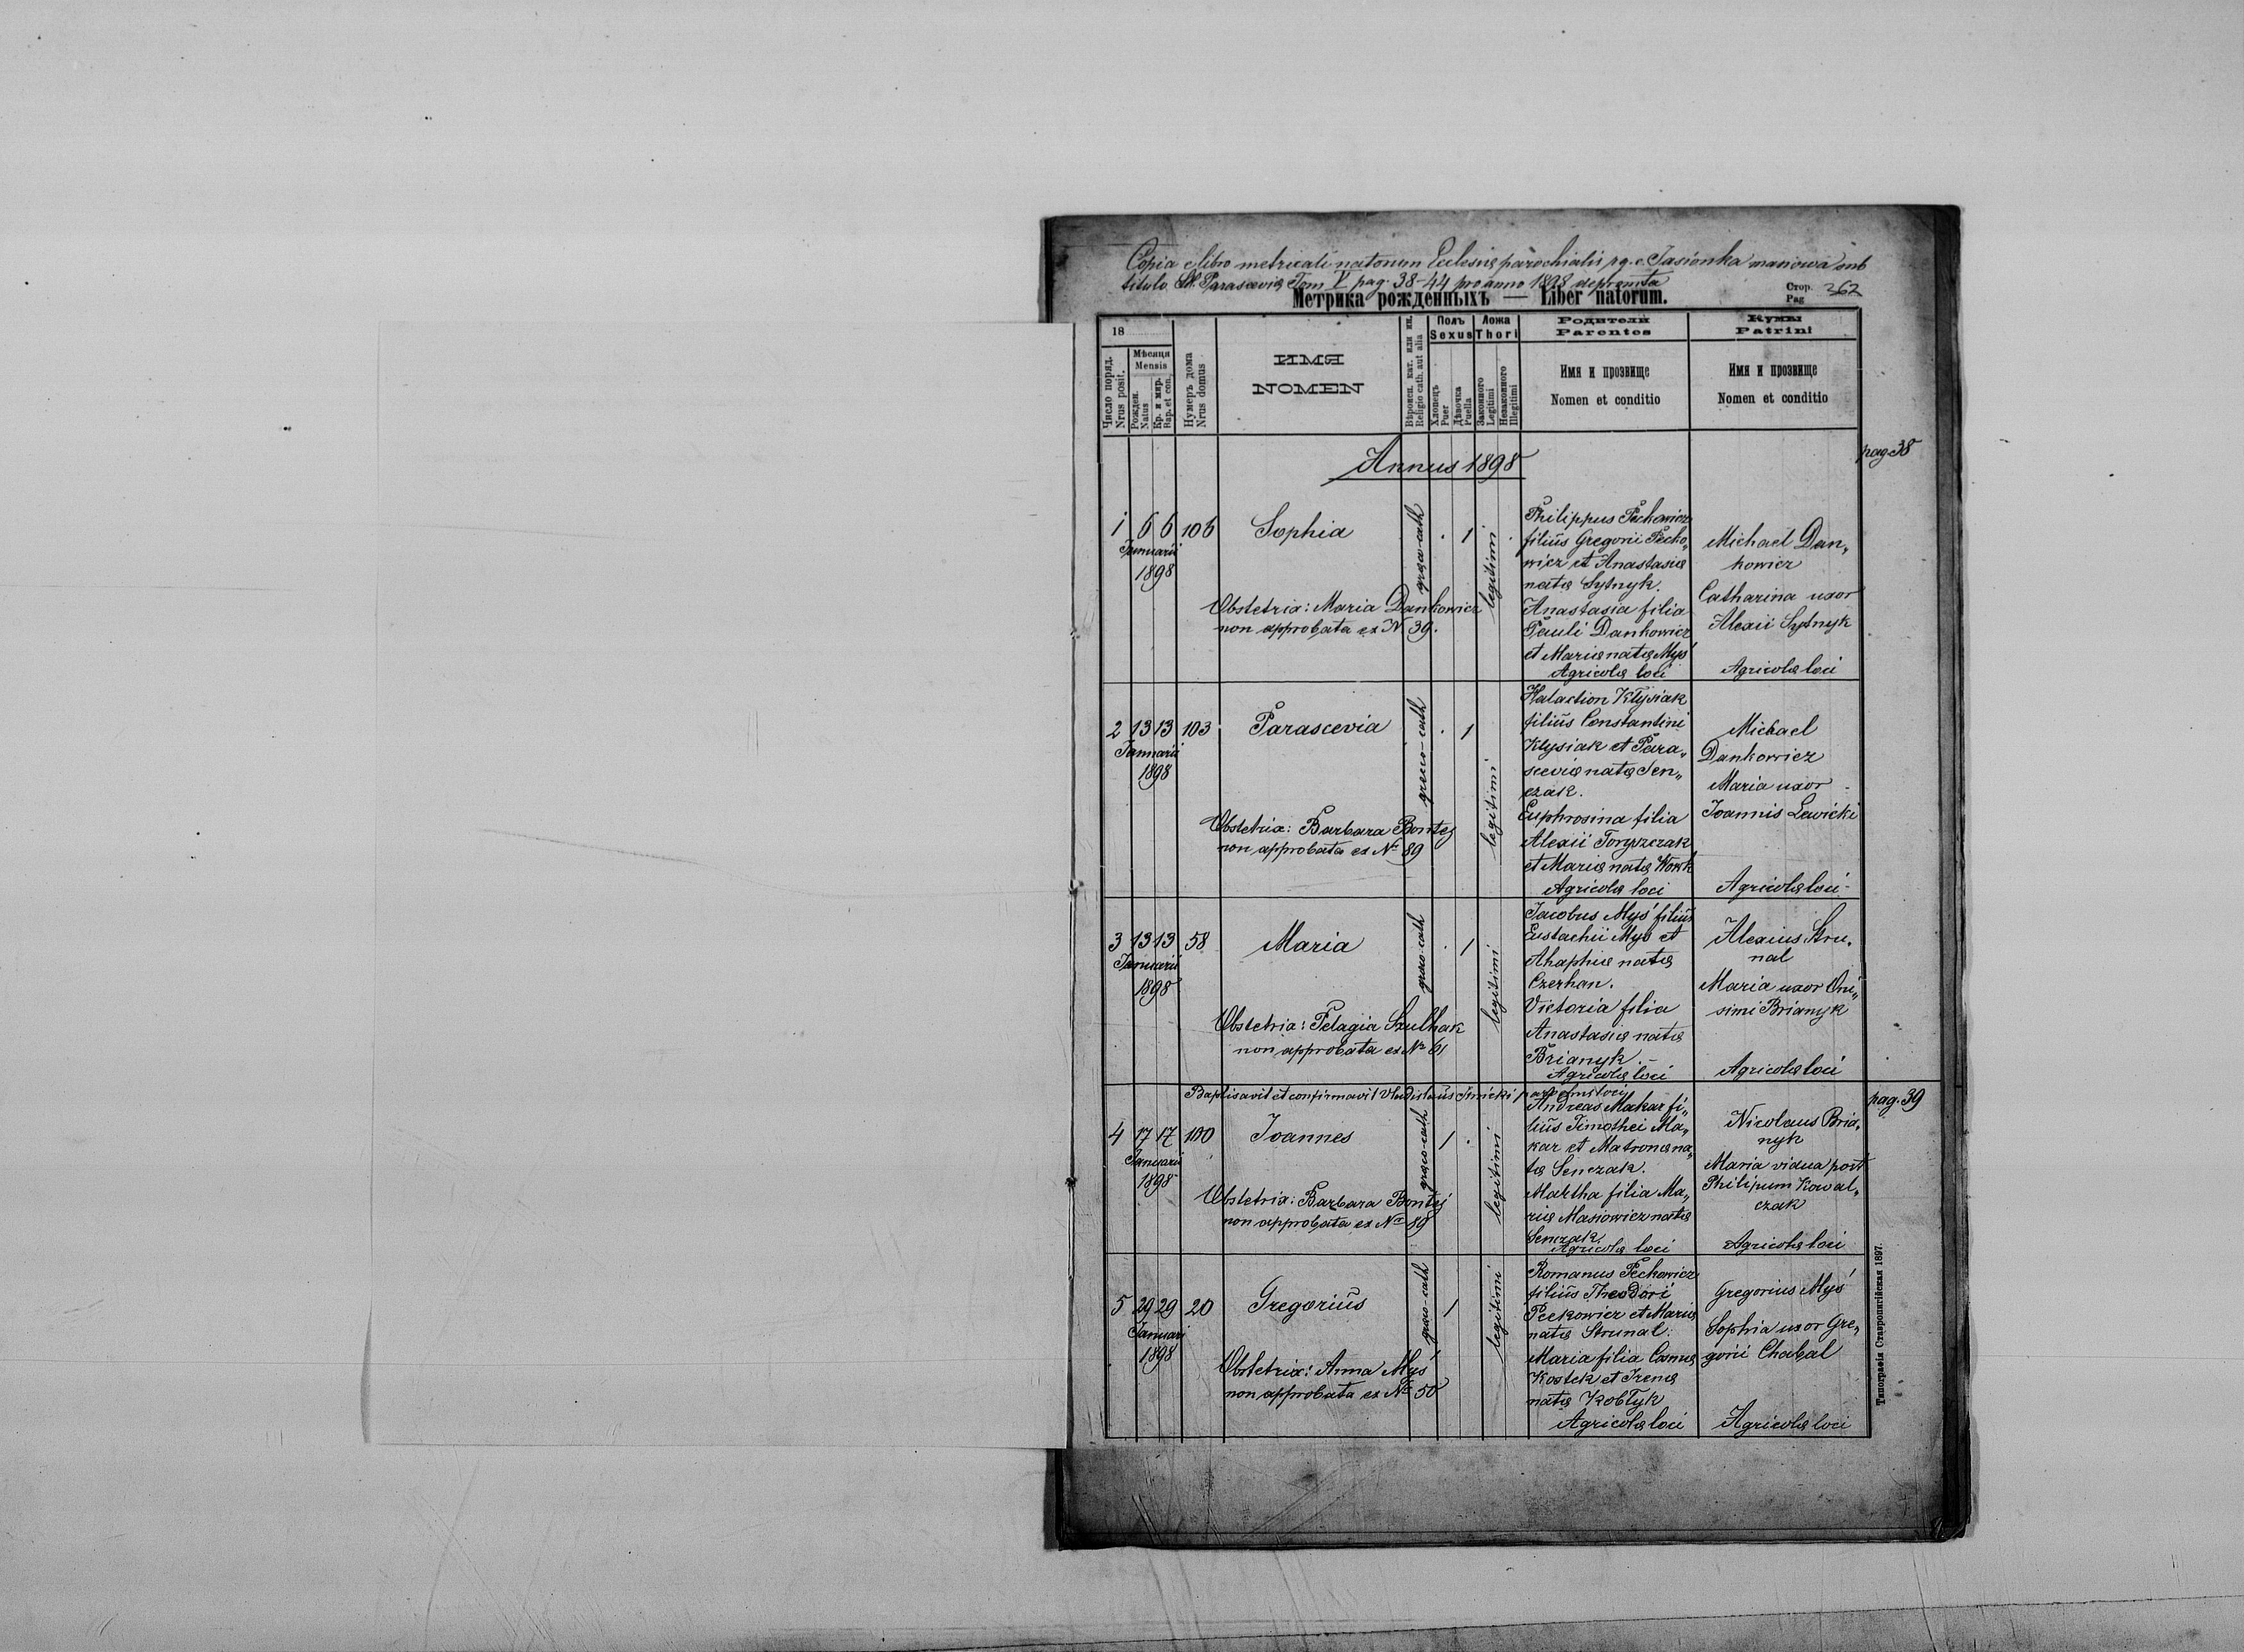 Copia e libro metricali natorum Ecclesiæ parochialis r.g.c. Jasionka masiowa sub
titulo St. Parasceviæ Tom V pag. 38-44 pro anno 1898 deprompta
Метрика рожденныхъ — Liber natorum.
Стор.
Pag 362
18
Число поряд.
Nrus posit.
Мѣсяця
Mensis
Рожден.
Natus
Кр. и мир.
Bap. et con.
Нумеръ дома
Nrus domus
ИМЯ
NOMEN
Вѣроисп. кат. или ин.
Religio cath. aut alia
Полъ
Sexus
Хлопецъ
Puer
Дѣвочка
Puella
Ложа
Thori
Законного
Legitimi
Незаконного
Illegitimi
Родители
Parentes
Имя и прозвище
Nomen et conditio
Кумы
Patrini
Имя и прозвище
Nomen et conditio
Annus 1898
pag. 38
1 6 6 106 Sophia
Januarii
1898
græco-cath
1
legitimi
Obstetrix: Maria Dankowicz
non approbata ex N 39.
Philippus Peckowicz
filius Gregorii Pecko„
wicz et Anastasiæ
natæ Sytnyk.
Anastasia filia
Pauli Dankowicz
et Mariæ natæ Myś
Agricolæ loci
Michael Dan„
kowicz
Catharina uxor
Alexii Sytnyk
Agricolæ loci
2 13 13 103 Parascevia
Januarii
1898
græco-cath
1
legitimi
Obstetrix: Barbara Bontej
non approbata ex No 89
Halaction Kłysiak
filius Constantini
Kłysiak et Para„
sceviæ natæ Sen„
czak.
Euphrosina filia
Alexii Toryszczak
et Mariæ natæ Wowk
Agricolæ loci
Michael
Dankowicz
Maria uxor
Joannis Lewicki
Agricolæ loci
3 13 13 58 Maria
Januarii
1898
græco-cath
1
legitimi
Obstetrix: Pelagia Szulhak
non approbata ex No 61
Jacobus Myś filius
Eustachii Myś et
Ahaphiæ natæ
Czerhan.
Victoria filia
Anastasiæ natæ
Brianyk.
Agricolæ loci
Alexius Stru„
nal
Maria uxor Oni„
simi Brianyk
Agricolæ loci
Baptisavit et confirmavit Vladislaus loci
pag. 39
4 17 17 100 Joannes
Januarii
1898
græco-cath
1
legitimi
Obstetrix: Barbara Bontej
non approbata ex No 89
Andreas Makar fi„
lius Timothei Ma„
kar et Matronæ na„
tæ Senczak.
Martha filia Ma„
riæ Masiowicz natæ
Senczak
Agricolæ loci
Nicolaus Bria„
nyk
Maria vidua post
Philipum Kowal„
czak
Agricolæ loci
5 29 29 20 Gregorius
Januari
1898
græco-cath
1
legitimi
Obstetrix: Anna Myś
non approbata ex No 50
Romanus Peckowicz
filius Theodori
Peckowicz et Mariæ
natæ Strunal.
Maria filia Cosmæ
Kostek et Irenæ
natæ Kobłyk
Agricolæ loci
Gregorius Myś
Sophia uxor Gre„
gorii Chabal
Agricolæ loci
Типографія Ставропигійская 1897.